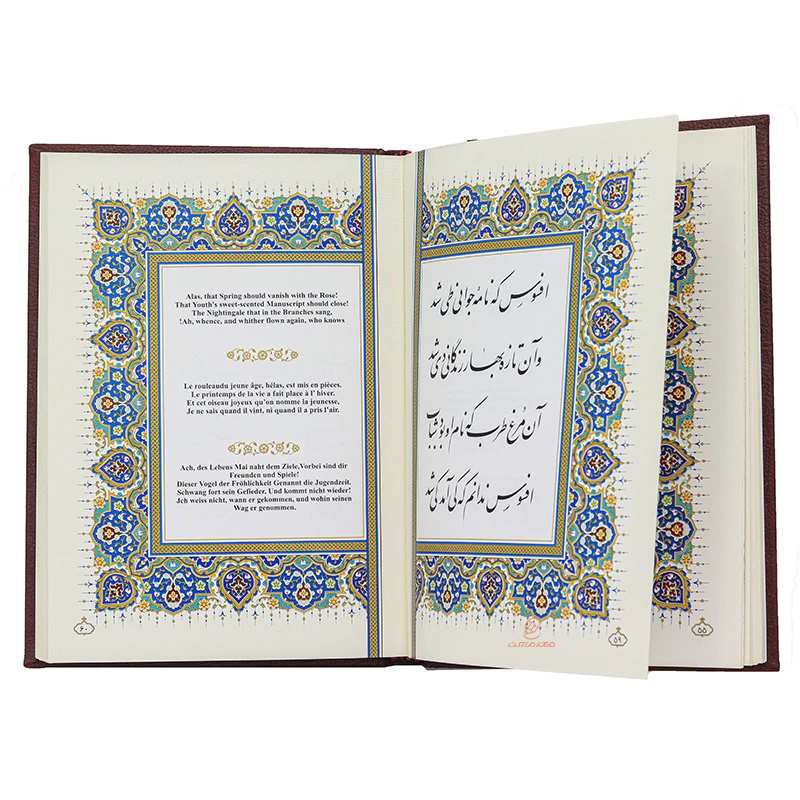 افسوس که نامه جوانی طی شد
وآن تازه بهار زندگانی دی شد
آن مرغ طرب که نام او بود شباب
افسوس ندانم که کی آمد کی شد
۵۹
۵۵
Alas, that Spring should vanish with the Rose!
That Youth's sweet-scented Manuscript should close!
The Nightingale that in the Branches sang,
!Ah, whence, and whither flown again, who knows
Le rouleaudu jeune âge, hélas, est mis en pièces.
Le printemps de la vie a fait place à l' hiver.
Et cet oiseau joyeux qu'on nomme la jeunesse,
Je ne sais quand il vint, ni quand il a pris l'air.
Ach, des Lebens Mai naht dem Ziele,Vorbei sind dir
Freunden und Spiele!
Dieser Vogel der Fröhlichkeit Genannt die Jugendzeit.
Schwang fort sein Gefieder, Und kommt nicht wieder!
Jch weiss nicht, wann er gekommen, und wohin seinen
Wag er genommen.
۶۰